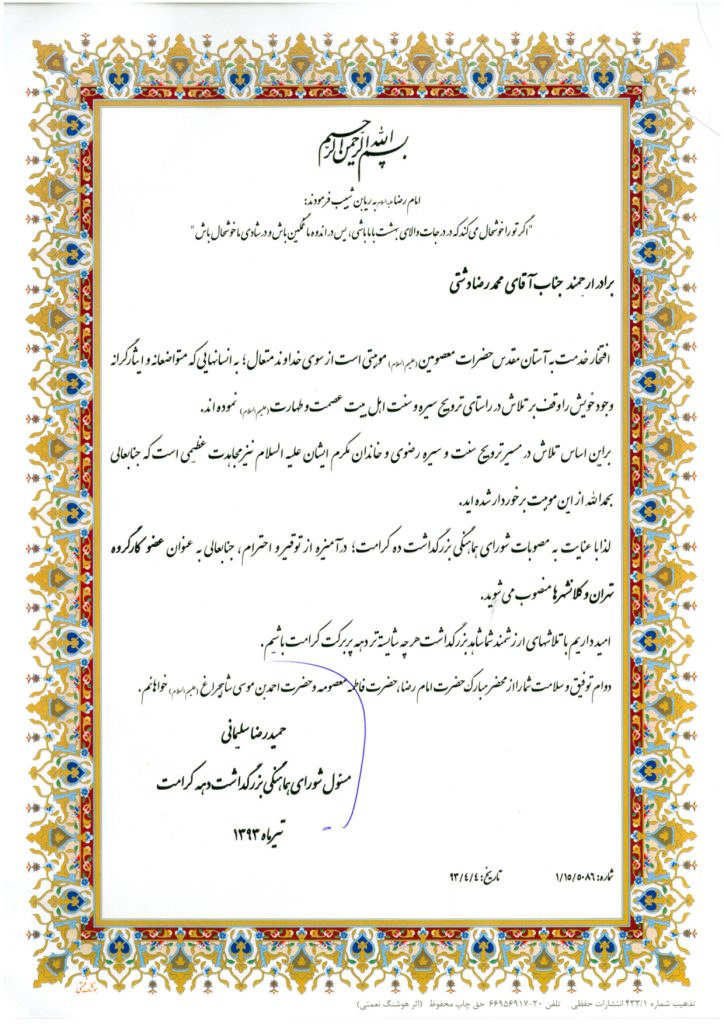 بسم الله الرحمن الرحیم
امام رضا علیه السلام به ریان بن شبیب فرمودند:
"اگر تو را خوشحال می کند که در درجات والای بهشت با ما باشی، پس در اندوه ما غمگین باش و در شادی ما خوشحال باش"
برادر ارجمند جناب آقای محمدرضا دشتی
افتخار خدمت به آستان مقدس حضرات معصومین (علیهم السلام) موهبتی است از سوی خداوند متعال؛ به انسانهایی که متواضعانه و ایثارگرانه
وجود خویش را وقف بر تلاش در راستای ترویج سیره و سنت اهل بیت عصمت و طهارت (علیهم السلام) نموده اند.
براین اساس تلاش در مسیر ترویج سنت و سیره رضوی و خاندان مکرم ایشان علیه السلام نیز مجاهدت عظیمی است که جنابعالی
بحمدالله از این موهبت برخوردار شده اید.
لذا با عنایت به مصوبات شورای هماهنگی بزرگداشت ده کرامت؛ در آمیزه از توقیر و احترام، جنابعالی به عنوان عضو کارگروه
تهران و کلانشهرها منصوب می شوید.
امید داریم با تلاشهای ارزشمند شما شاهد بزرگداشت هر چه شایسته تر دهه پربرکت کرامت باشیم.
دوام توفیق و سلامت شما را از محضر مبارک حضرت امام رضا، حضرت فاطمه معصومه و حضرت احمد بن موسی شاهچراغ (علیهم السلام) خواهانم.
حمیدرضا سلیمانی
مسئول شورای هماهنگی بزرگداشت دهه کرامت
تیرماه ۱۳۹۳
شماره: ۱/۱۵/۵۰۸۶ تاریخ: ۹۳/۴/۴
تذهیب شماره ۴۳۳/۱ انتشارات حفظی تلفن ۲۰-۶۶۹۵۶۹۱۷ حق چاپ محفوظ (اثر هوشنگ نعمتی)